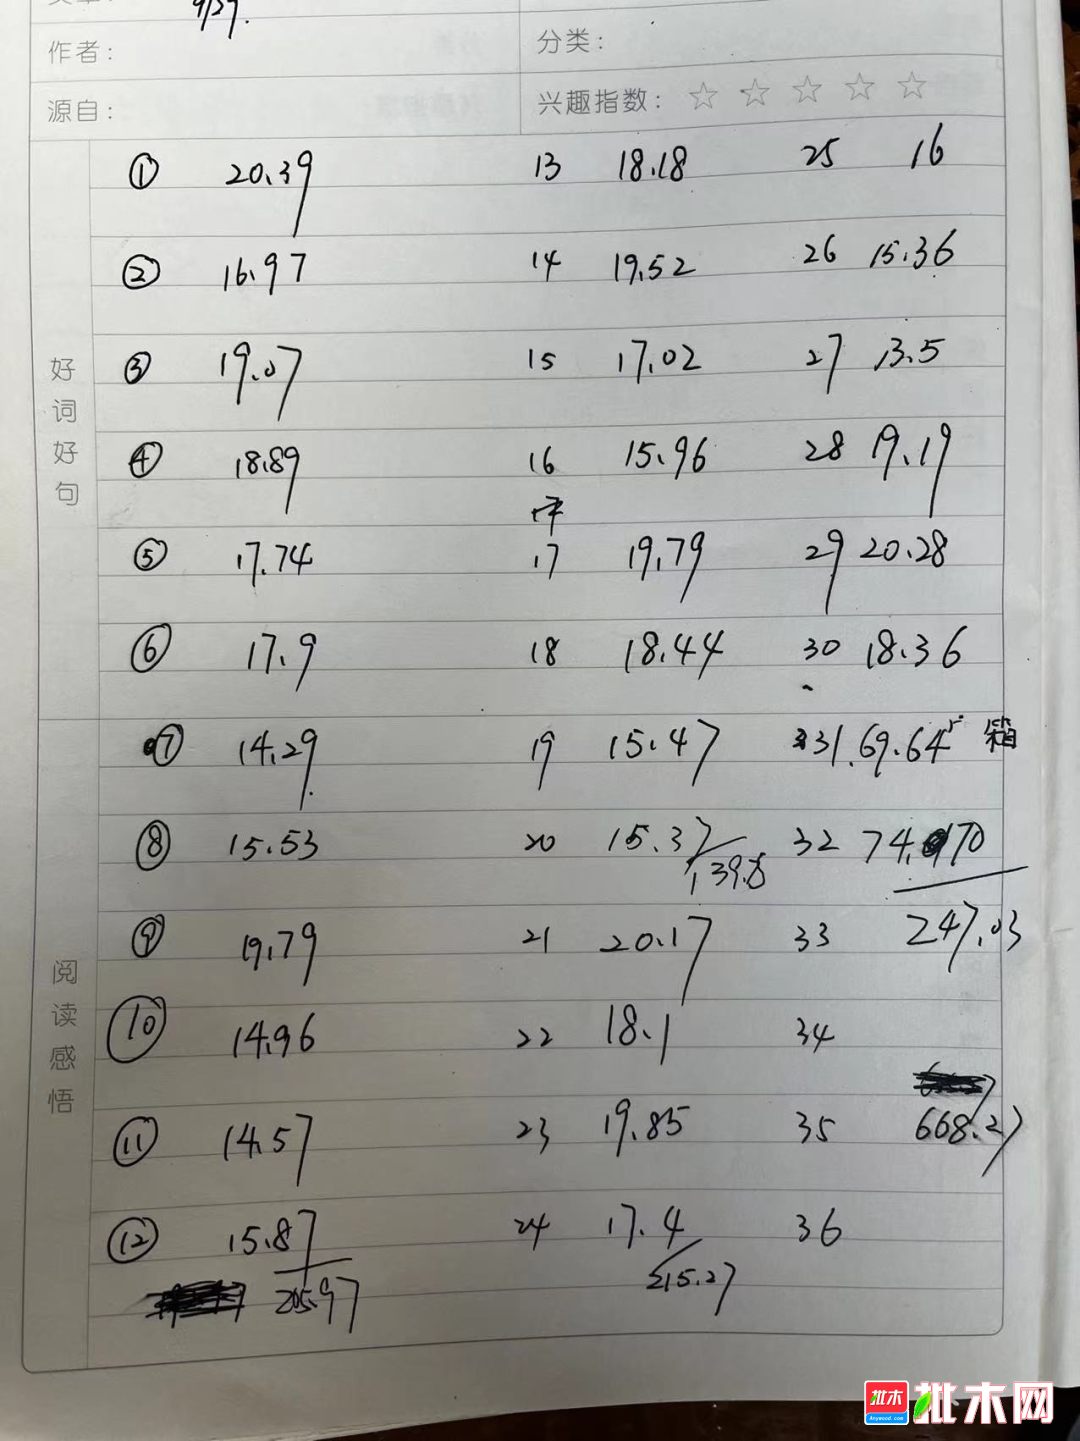 9/29.
作者：
分类：
源自：
兴趣指数：☆ ☆ ☆ ☆ ☆
① 20.39 13 18.18 25 16
② 16.97 14 19.52 26 15.36
③ 19.07 15 17.02 27 13.5
④ 18.89 16 15.96 28 19.19
⑤ 17.74 17 19.79 29 20.28
⑥ 17.9 18 18.44 30 18.36
⑦ 14.29 19 15.47 31. 69.64 箱
⑧ 15.53 20 15.37 32 74.170
139.8
⑨ 19.79 21 20.17 33 247.03
⑩ 14.96 22 18.1 34
⑪ 14.57 23 19.85 35 668.27
⑫ 15.87 24 17.4 36
205.97 215.27
好词好句
阅读感悟
批木 批木网
www.Anywood.com